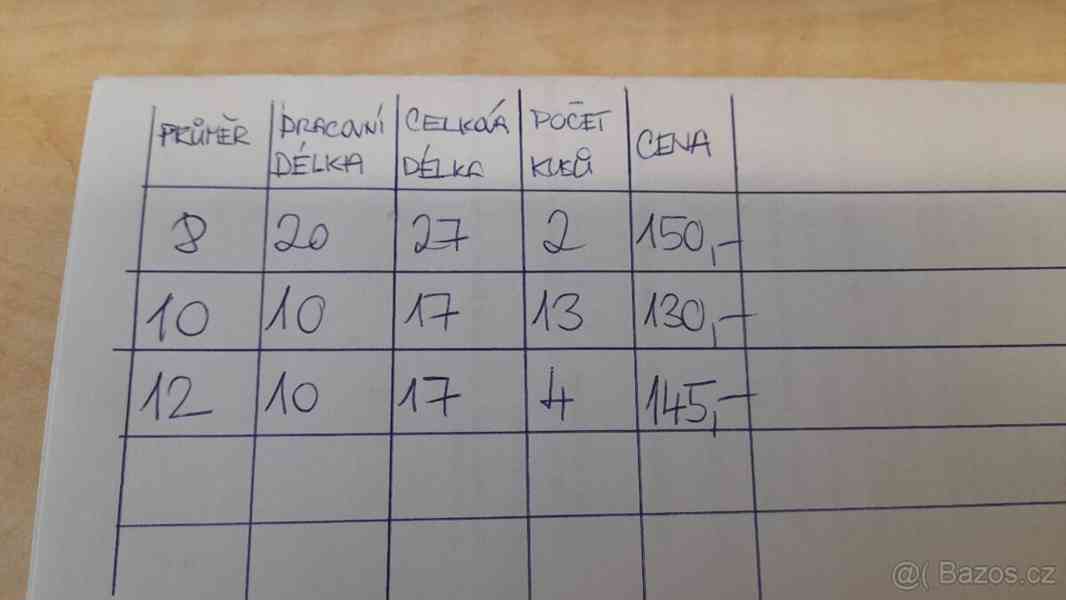 PRŮMĚR PRACOVNÍ DÉLKA CELKOVÁ DÉLKA POČET KUSŮ CENA
8 20 27 2 150,-
10 10 17 13 130,-
12 10 17 4 145,-
@( Bazos.cz